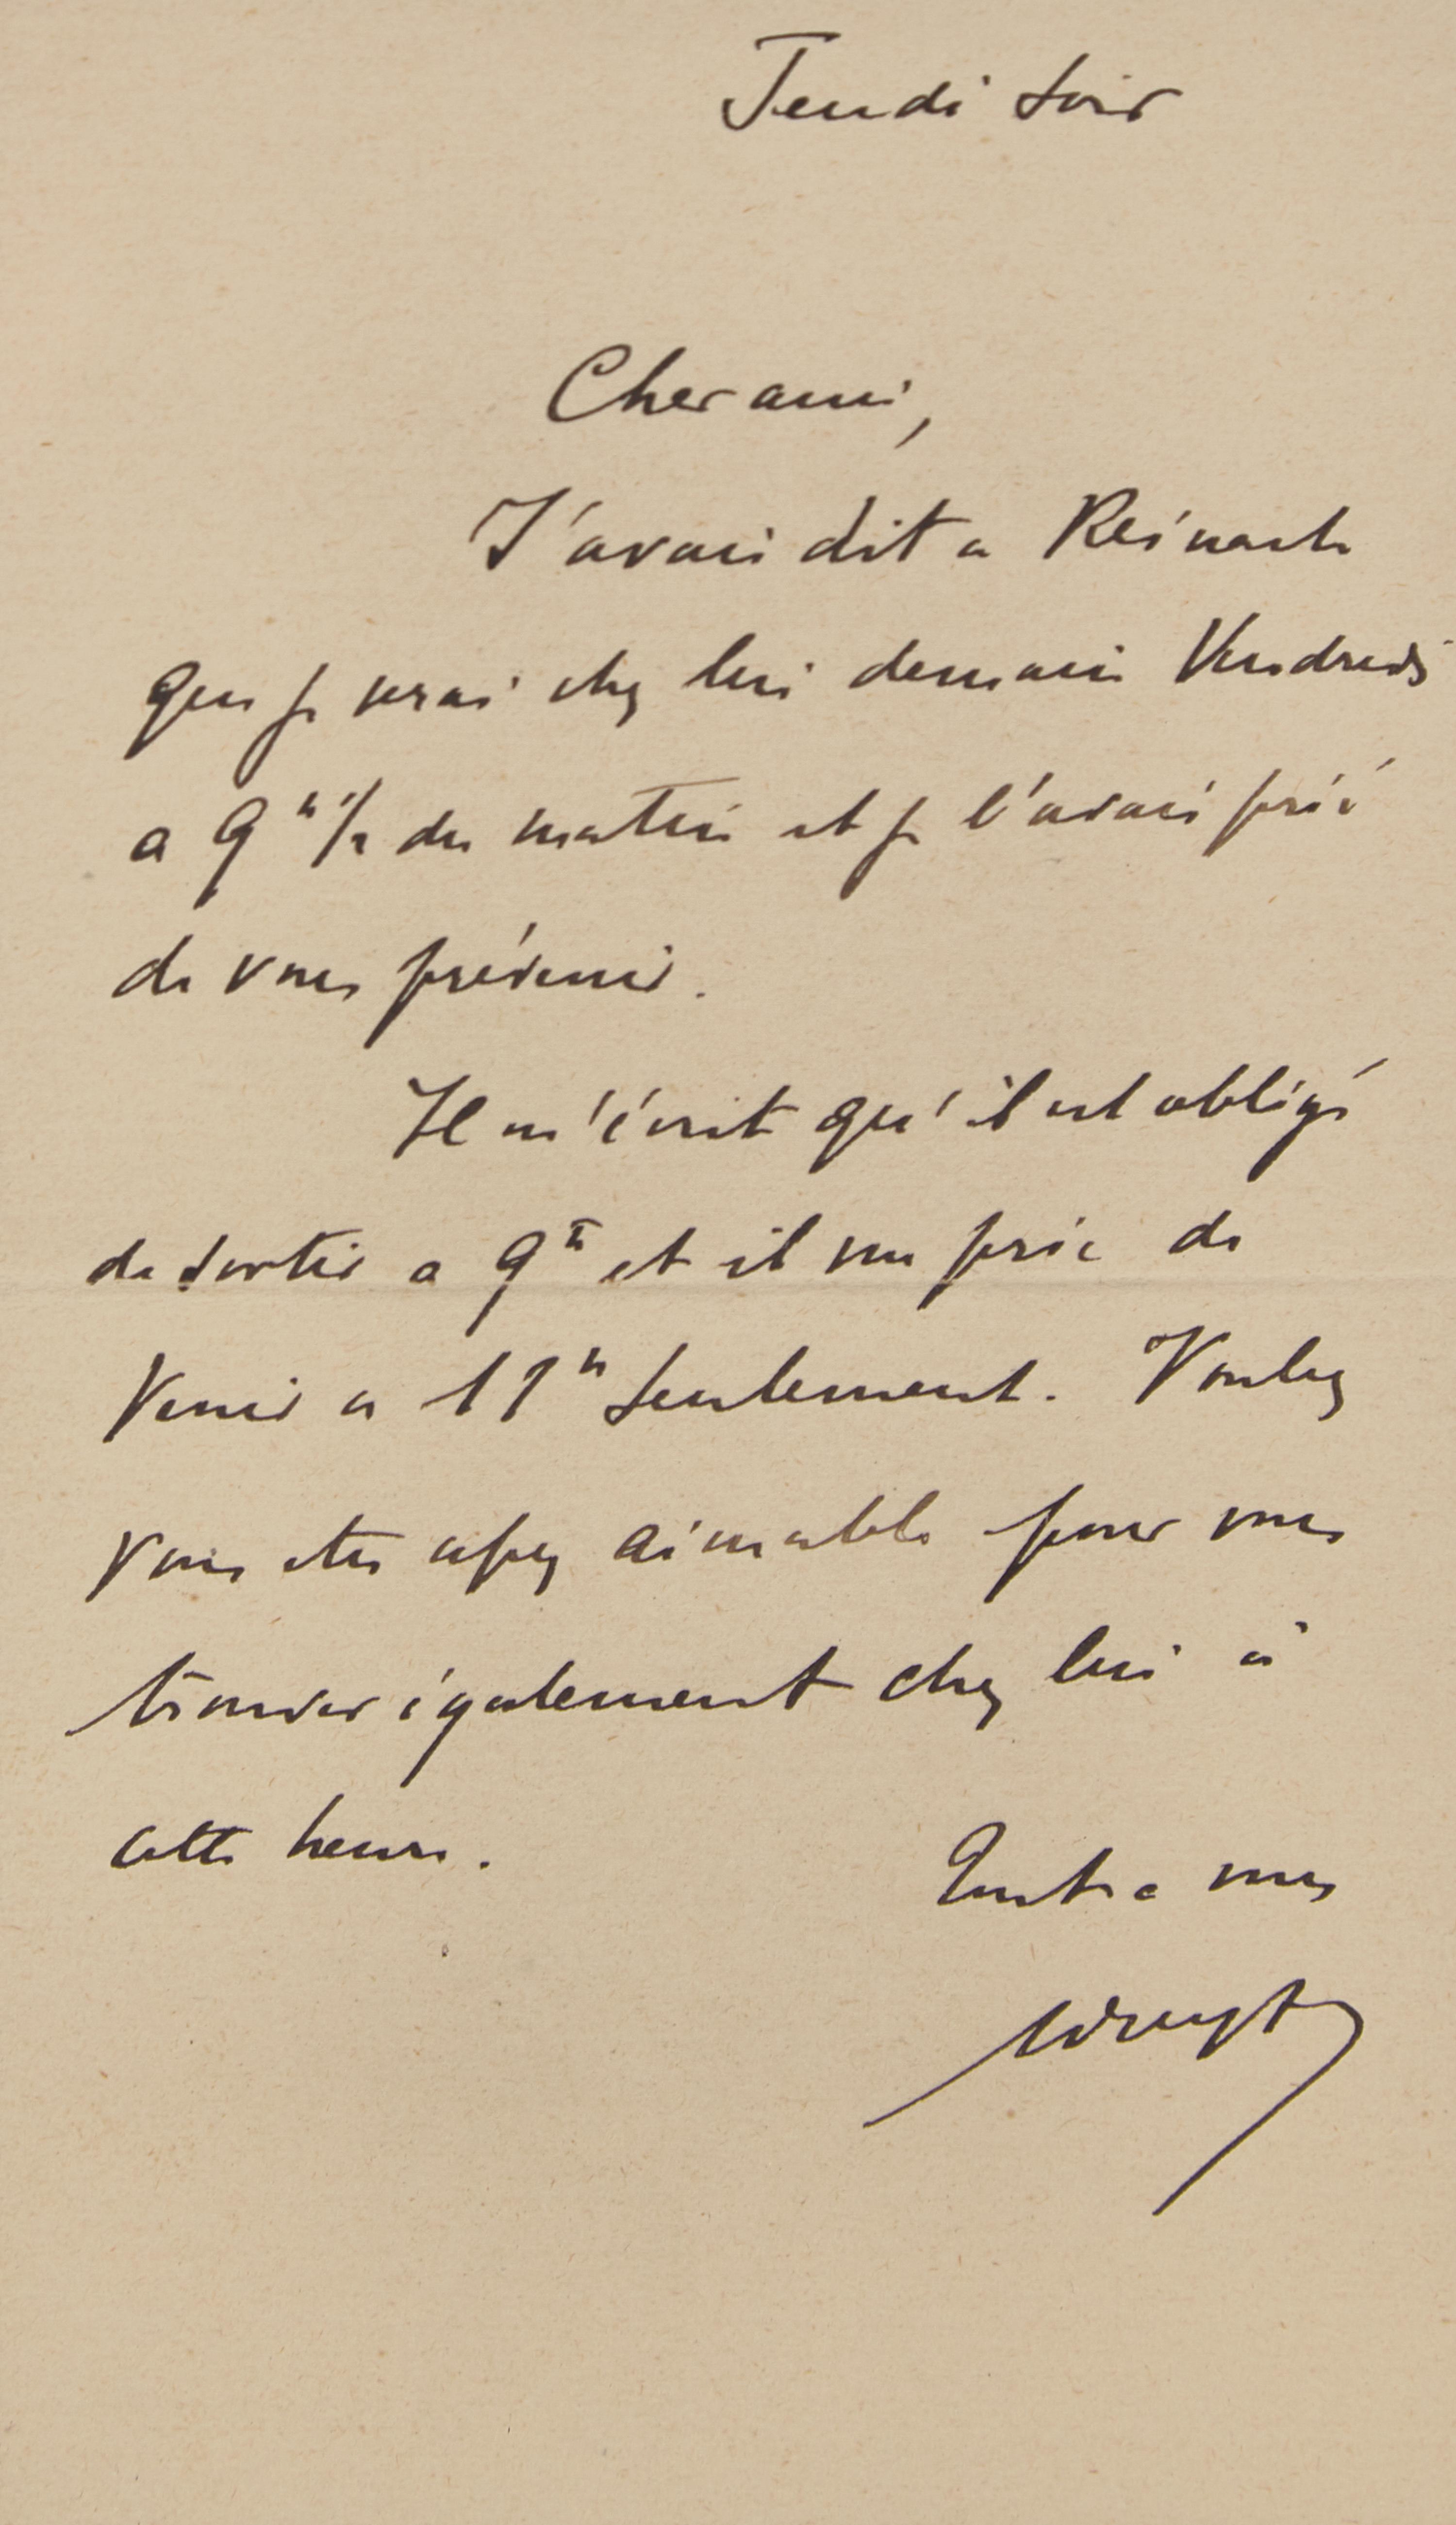 Jeudi soir
Cher ami,
J'avais dit a Reinach
que je serai chez lui demain Vendredi
a 9h 1/2 du matin et je l'avais prié
de vous prévenir.
Il m'écrit qu'il est obligé
de sortir a 9h et il me prie de
venir a 11h seulement. Voulez
vous etre assez aimable pour vous
trouver également chez lui à
cette heure.
Tout a vous